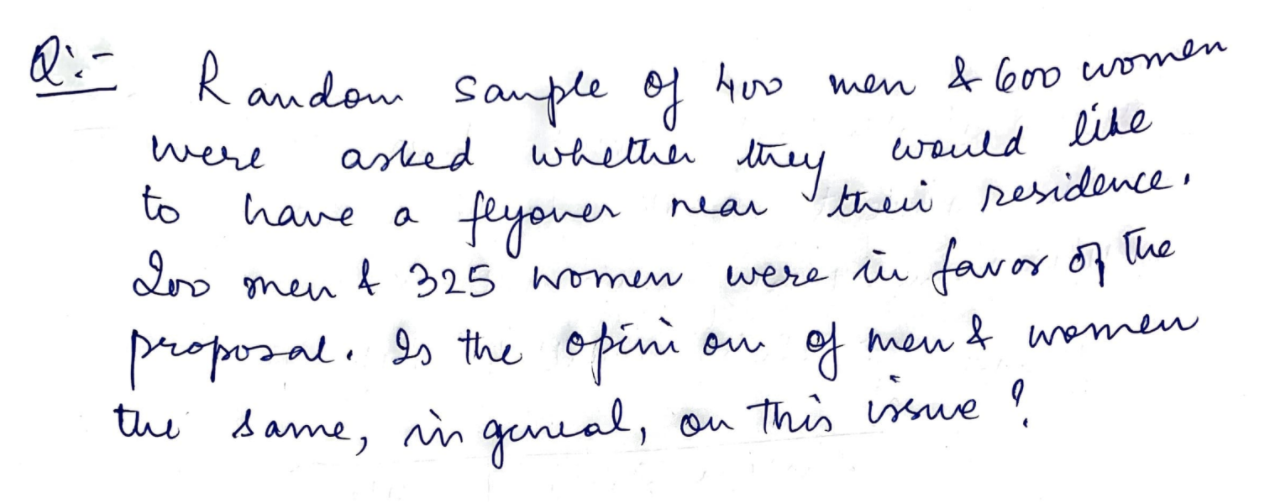 Q:- Random sample of 400 men & 600 women
were asked whether they would like
to have a flyover near their residence.
200 men & 325 women were in favor of the
proposal. Is the opinion of men & women
the same, in general, on this issue?